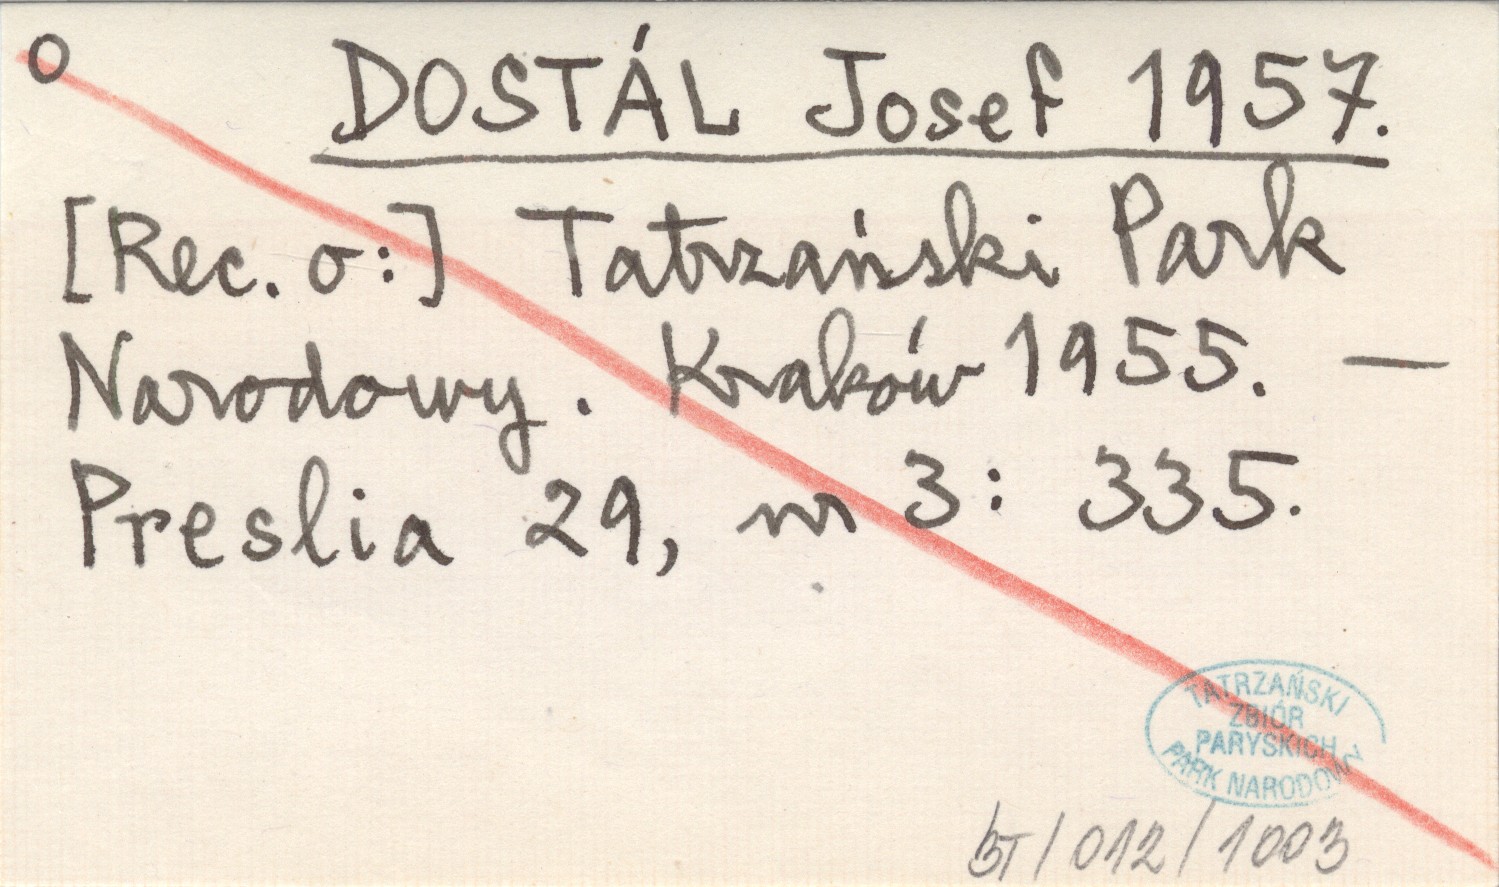 O
DOSTÁL Josef 1957.
[Rec. o:] Tatrzański Park
Narodowy. Kraków 1955. —
Preslia 29, nr 3: 335.
TATRZAŃSKI
ZBIÓR
PARYSKICH
PARK NARODOWY
BT/012/1003